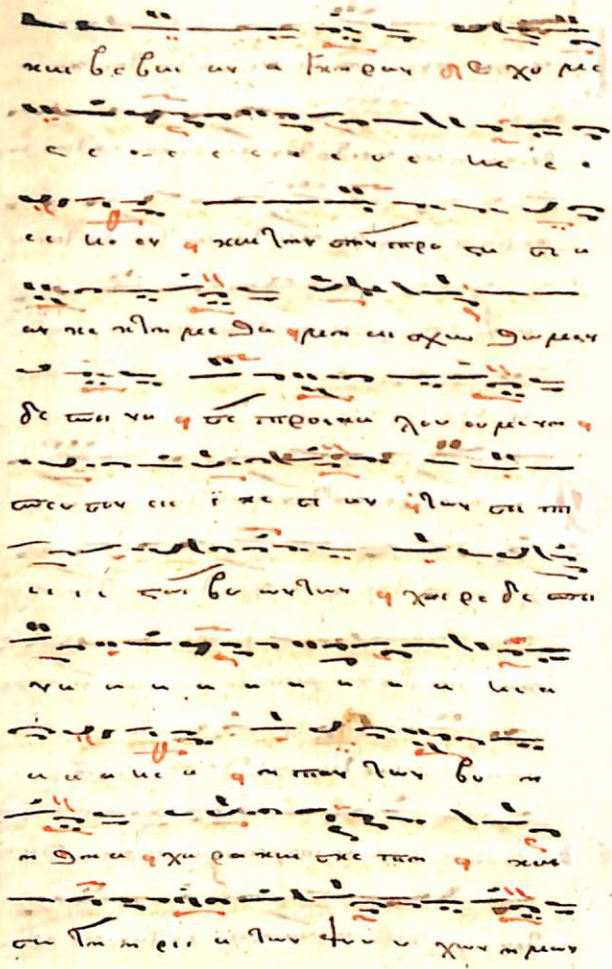 και βε βαι αν α γκυ ραν σε ε χο με
ε ε ε ε ε ε ε ε ε νε ε ε
ε ε νε εν και την σην προ στα σι α
αν κε κτη με θα μη αι σχυν θω μεν
δε σποι να σε προσκα λου ου με νοι
σπευ σον εις ι κε σι αν των πι
ι ι ι στως βο ων των χαι ρε δε σποι
να α α α α α α α α νε α
α α α νε α η παν των βο η
η θει α χα ρα και σκε πη και
σω τη η ρι ι α των ψυ υ χων ημων